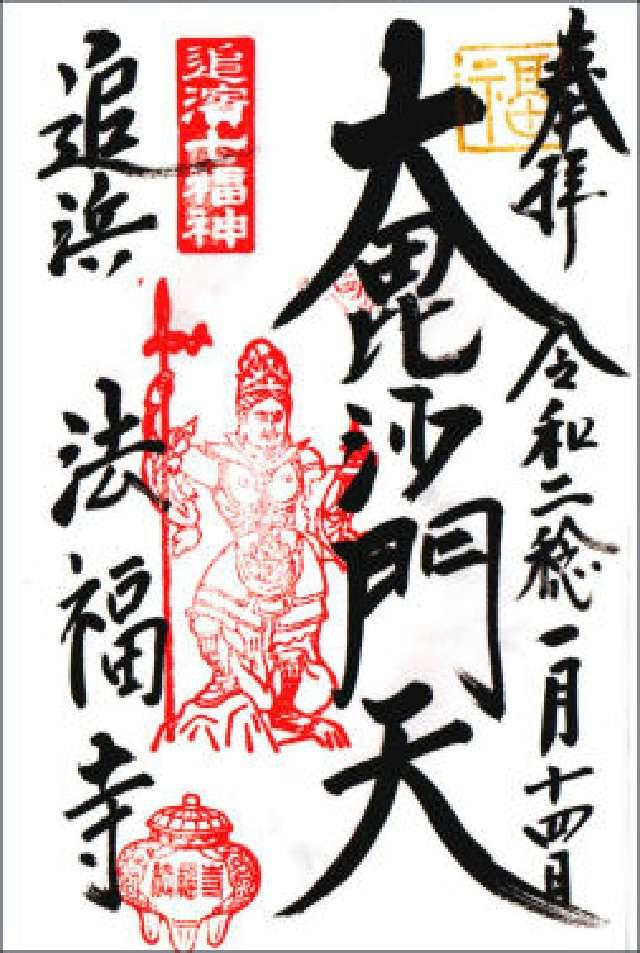 奉拝
福
令和二稔一月十四日
大毘沙門天
追濱七福神
追浜
法福寺
法福寺